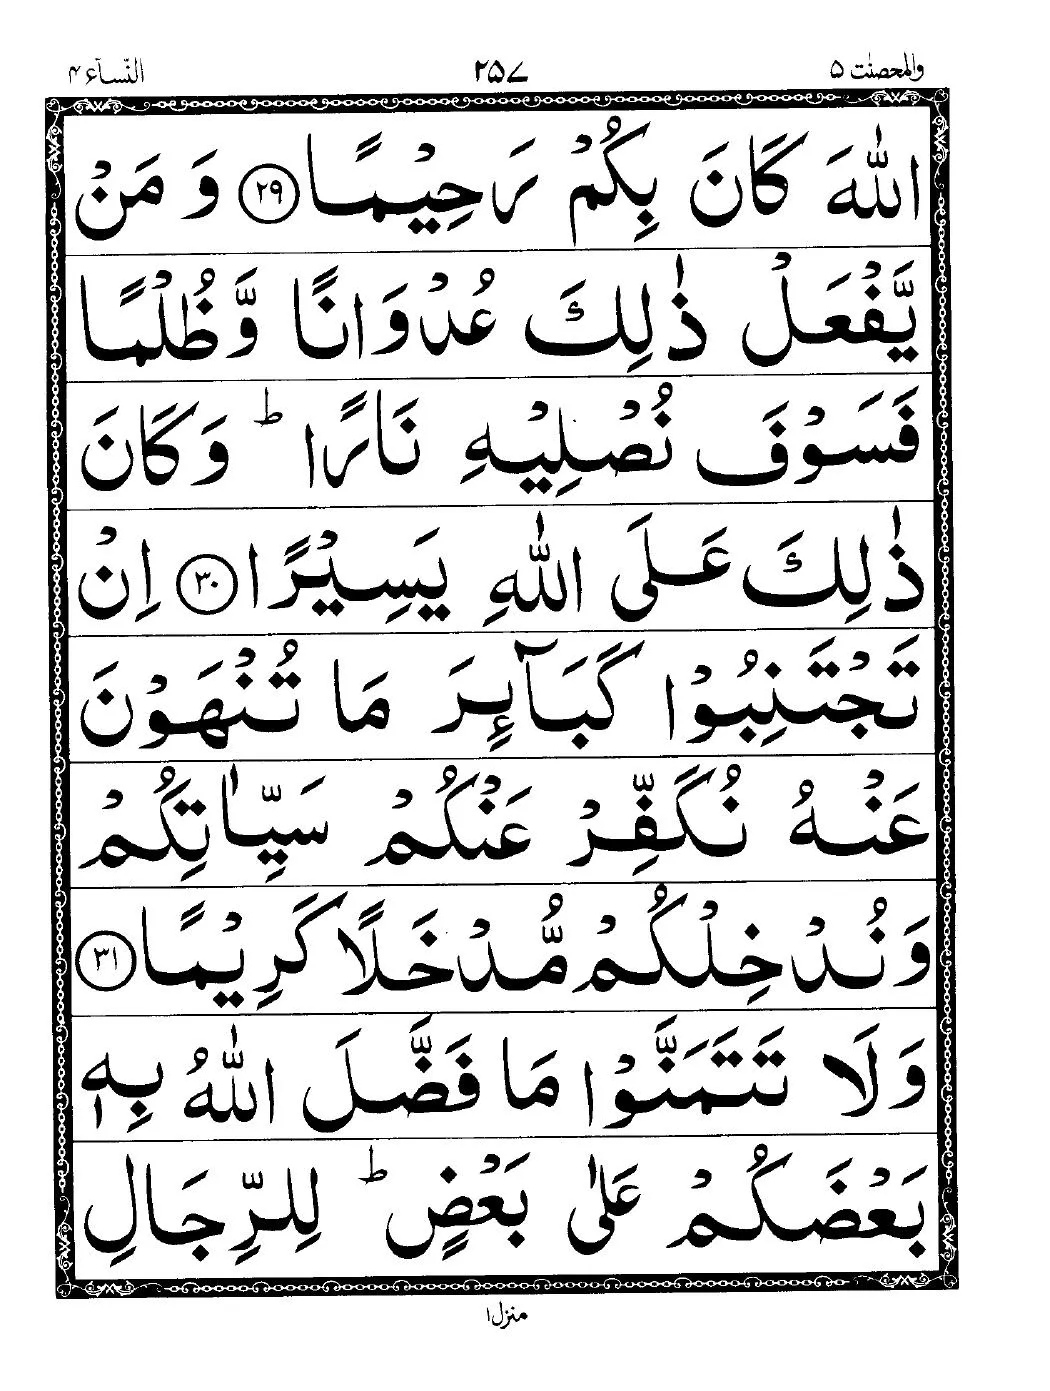 والمحصنٰت ۵ ۲۵۷ النّسآء ۴
اللّٰهَ كَانَ بِكُمْ رَحِيْمًا ۲۹ وَ مَنْ
يَّفْعَلْ ذٰلِكَ عُدْوَانًا وَّظُلْمًا
فَسَوْفَ نُصْلِيْهِ نَارًا ؕ وَكَانَ
ذٰلِكَ عَلَى اللّٰهِ يَسِيْرًا ۳۰ اِنْ
تَجْتَنِبُوْا كَبَآئِرَ مَا تُنْهَوْنَ
عَنْهُ نُكَفِّرْ عَنْكُمْ سَيِّاٰتِكُمْ
وَنُدْخِلْكُمْ مُّدْخَلًا كَرِيْمًا ۳۱
وَلَا تَتَمَنَّوْا مَا فَضَّلَ اللّٰهُ بِهٖ
بَعْضَكُمْ عَلٰى بَعْضٍ ؕ لِلرِّجَالِ
منزل ۱